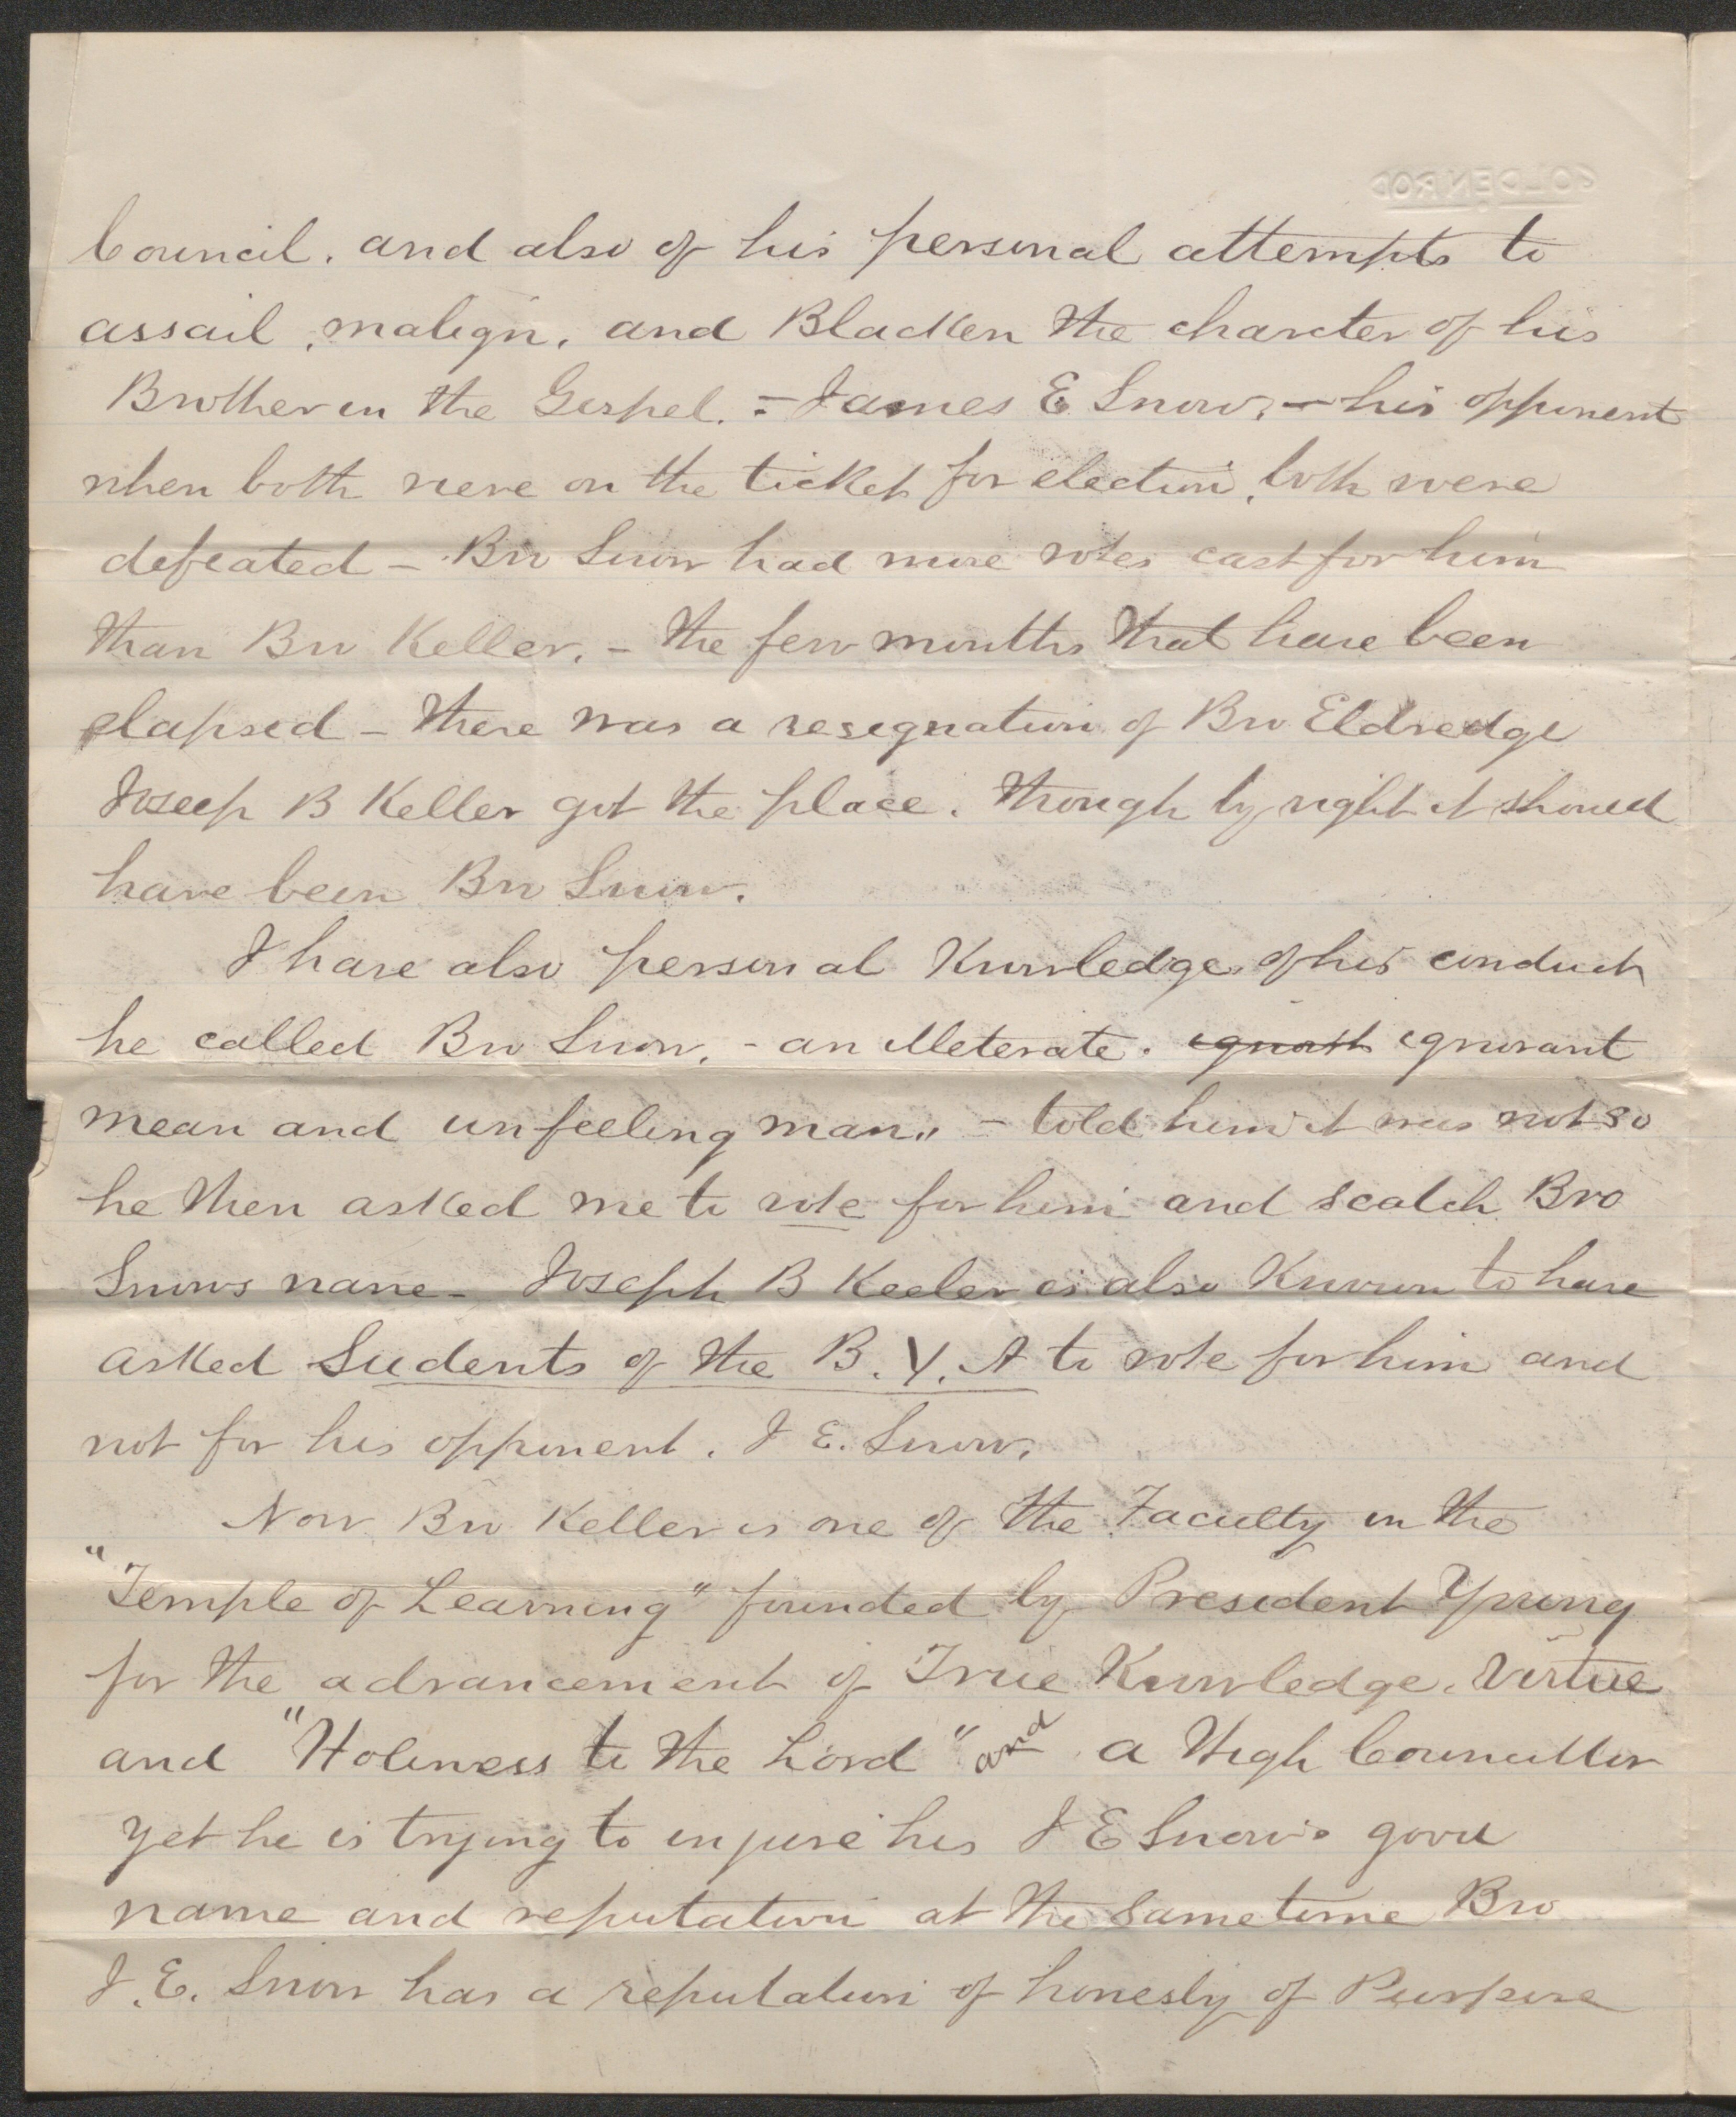 GOLDENROD
Council. and also of his personal attempts to
assail, malign, and Blacken the charcter of his
Brother in the Gospel. - James E Snow, - his opponent
when both were on the ticket for election, both were
defeated - Bro Snow had more votes cast for him
than Bro Keller, - the few months that have been
elapsed - there was a resegnation of Bro Eldredge
Joseep B Keller got the place. though by right it should
have been Bro Snow.
I have also personal Knowledge of his conduct
he called Bro Snow, - an illeterate. ignorant
mean and unfeeling man" - told him it was not so
he then asked me to vote for him and scatch Bro
Snows name - Joseph B Keeler is also Known to have
asked Sudents of the B. Y. A to vote for him and
not for his opponent. J E. Snow.
Now Bro Keller is one of the Faculty in the
"Temple of Learning" founded by President Young
for the advancement of True Knowledge. Virtue
and "Holiness to the Lord" and a High Councillor
yet he is trying to injure his J E Snow's good
name and reputation at the same time Bro
J. E. Snow has a reputation of honesty of Purpose